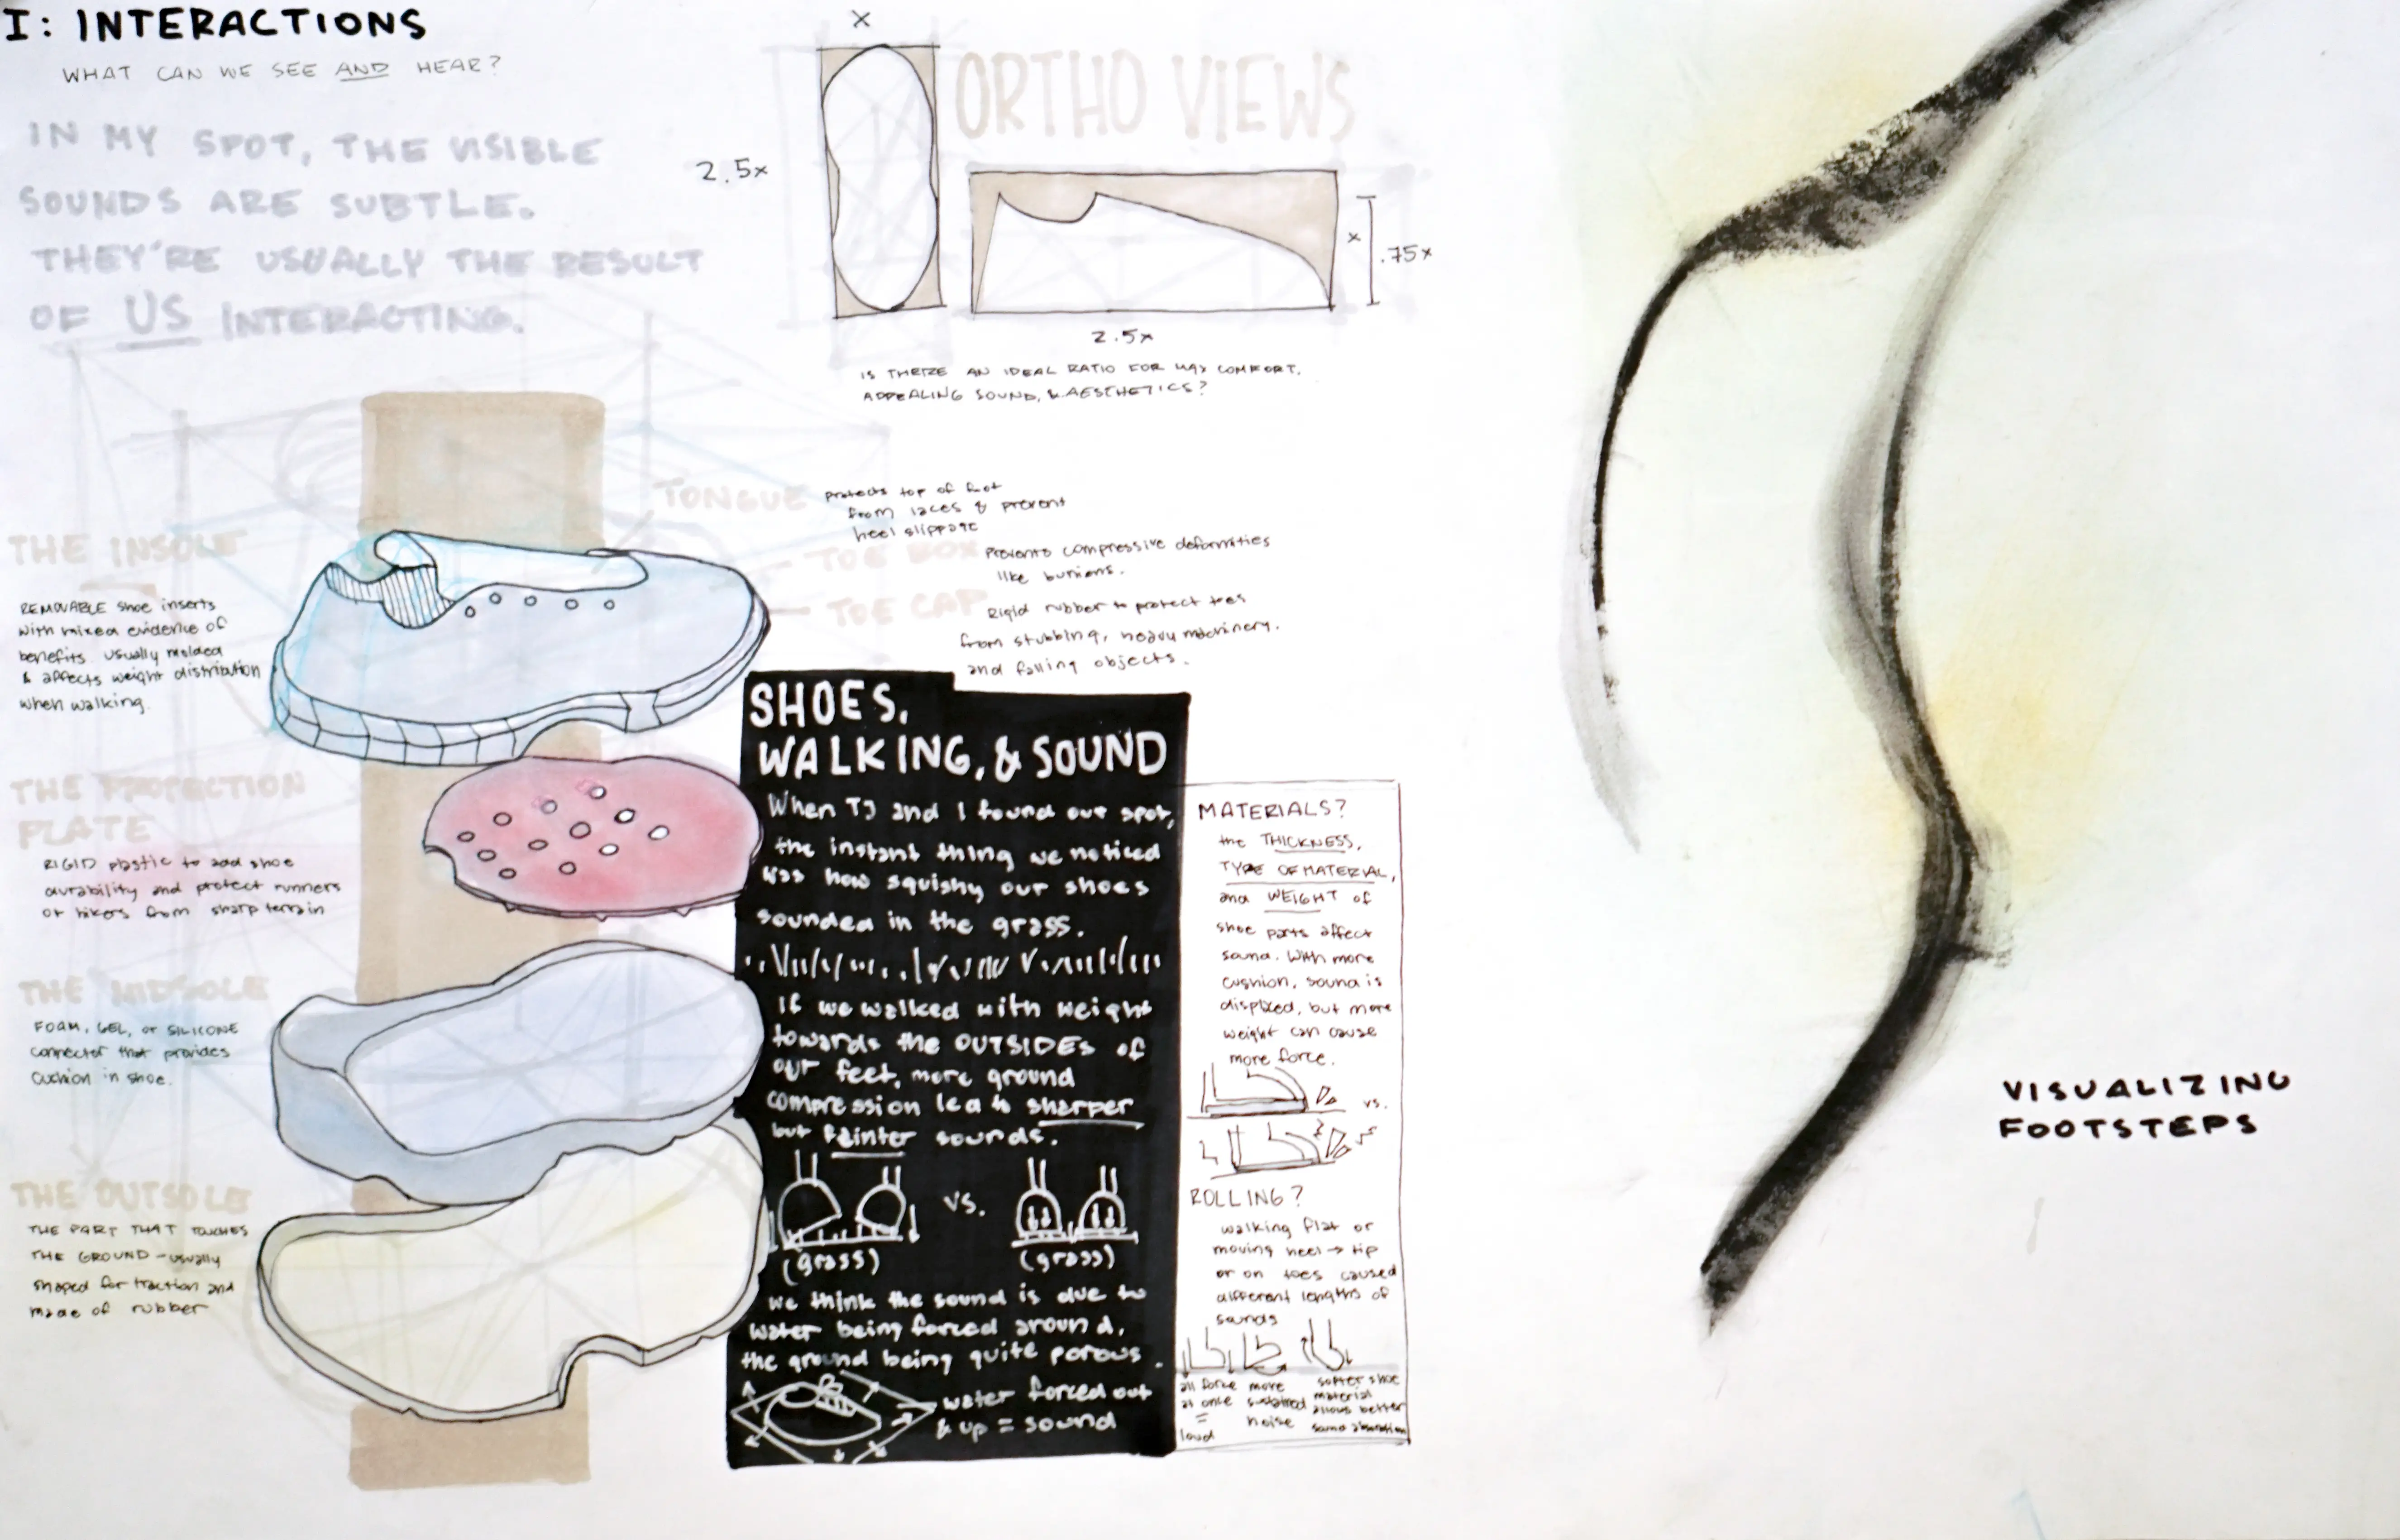 I: INTERACTIONS
WHAT CAN WE SEE AND HEAR?
IN MY SPOT, THE VISIBLE
SOUNDS ARE SUBTLE.
THEY'RE USUALLY THE RESULT
OF US INTERACTING.
ORTHO VIEWS
x
2.5x
x
.75x
2.5x
IS THERE AN IDEAL RATIO FOR MAX COMFORT,
APPEALING SOUND, & AESTHETICS?
TONGUE
protects top of foot
from laces & prevent
heel slippage
TOE BOX
Prevents compressive deformities
like bunions.
TOE CAP
Rigid rubber to protect toes
from stubbing, heavy machinery.
and falling objects.
THE INSOLE
REMOVABLE shoe inserts
with mixed evidence of
benefits. usually molded
& affects weight distribution
when walking.
THE PROTECTION
PLATE
RIGID plastic to add shoe
durability and protect runners
or hikers from sharp terrain
THE MIDSOLE
FOAM, GEL, or SILICONE
connector that provides
cushion in shoe.
THE OUTSOLE
THE PART THAT TOUCHES
THE GROUND - usually
shaped for traction and
made of rubber
SHOES,
WALKING, & SOUND
When TJ and I found our spot,
the instant thing we noticed
was how squishy our shoes
sounded in the grass.
If we walked with weight
towards the OUTSIDES of
our feet, more ground
compression lea to sharper
but fainter sounds.
vs.
(grass)
(grass)
we think the sound is due to
water being forced around,
the ground being quite porous.
water forced out
& up = sound
MATERIALS?
the THICKNESS,
TYPE OF MATERIAL,
and WEIGHT of
shoe parts affect
sound. With more
cushion, sound is
but more
weight can cause
more force.
vs.
ROLLING?
walking flat or
moving heel → tip
or on toes caused
different lengths of
sounds
all force
at once
=
loud
more
sustained
noise
softer shoe
material
allows better
sound absorption
VISUALIZING
FOOTSTEPS